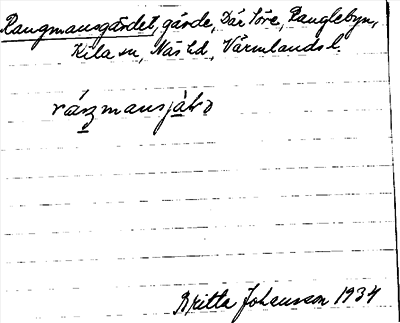 Rangmansgärdet, gärde, Där Töre, Ranglebyn,
Kila sn, Näs hd, Värmlands l.
Britta Johansson 1934